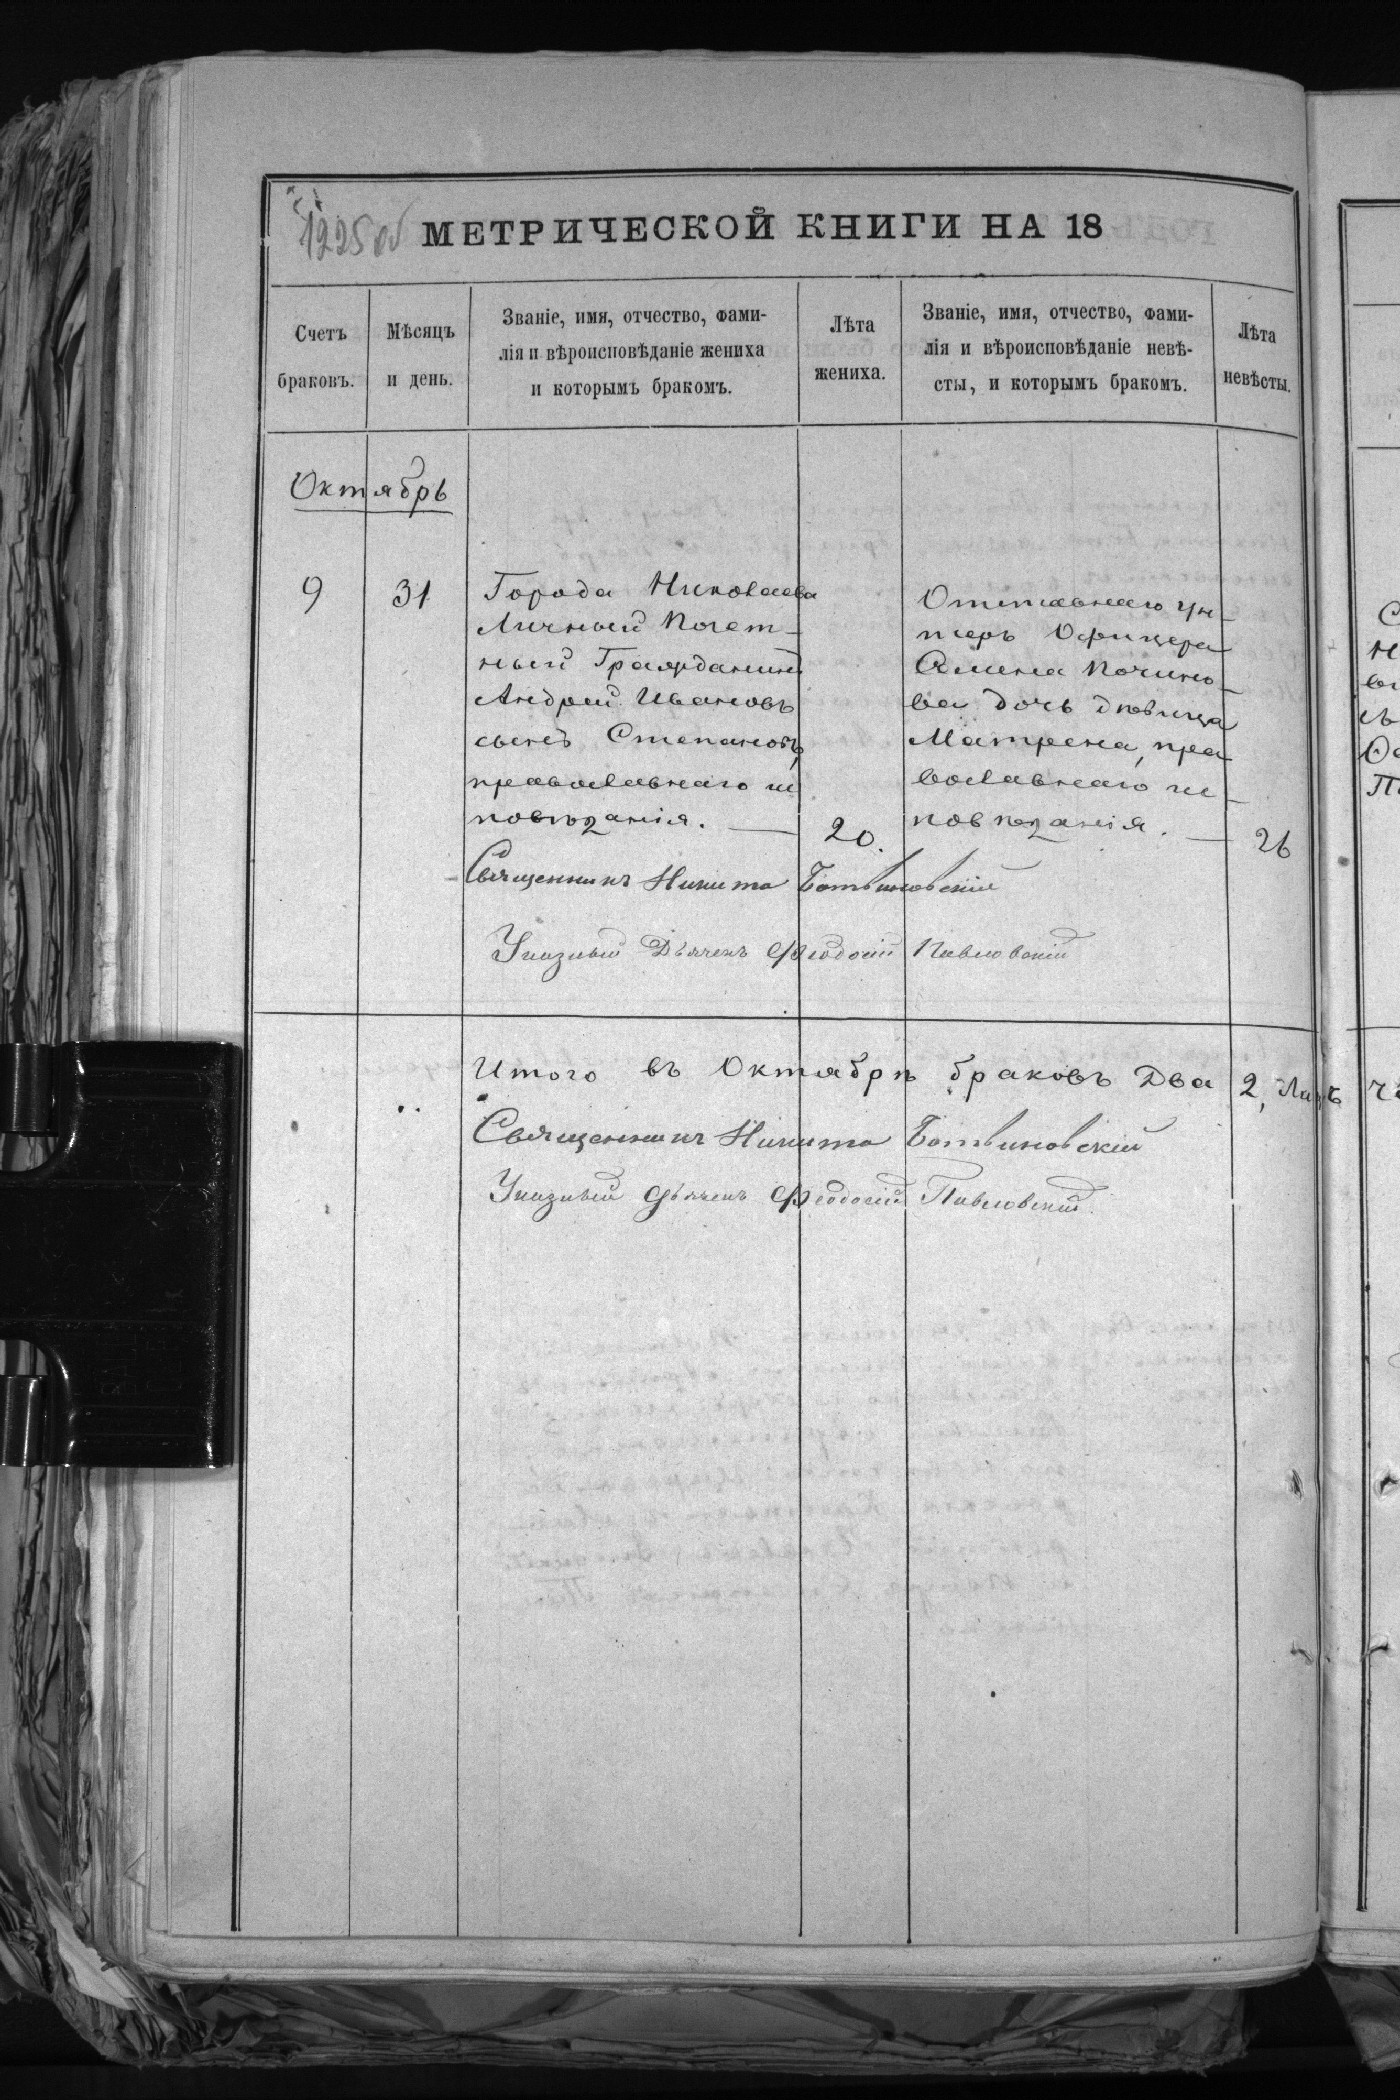 1225об
МЕТРИЧЕСКОЙ КНИГИ НА 18
Счетъ браковъ.
Мѣсяцъ и день.
Званіе, имя, отчество, фами-
лія и вѣроисповѣданіе жениха
и которымъ бракомъ.
Лѣта жениха.
Званіе, имя, отчество, фами-
лія и вѣроисповѣданіе невѣ-
сты, и которымъ бракомъ.
Лѣта невѣсты.
Октябрь
9
31
Города Николаева
Личный Почет-
ный Гражданинъ
Андрей Ивановъ
сынъ Степановъ,
православнаго ис
повѣданія. —
20.
Отставнаго Ун-
теръ Офицера
Почино-
ва дочь дѣвица
Матрена, пра
вославнаго ис-
повѣданія. —
26
Священникъ Никита Ботвиновскій
Указный Дьячекъ Феодосій Павловскій
Итого въ Октябрѣ браковъ Два 2,
Священникъ Никита Ботвиновскій
Указный Дьячекъ Феодосій Павловскій